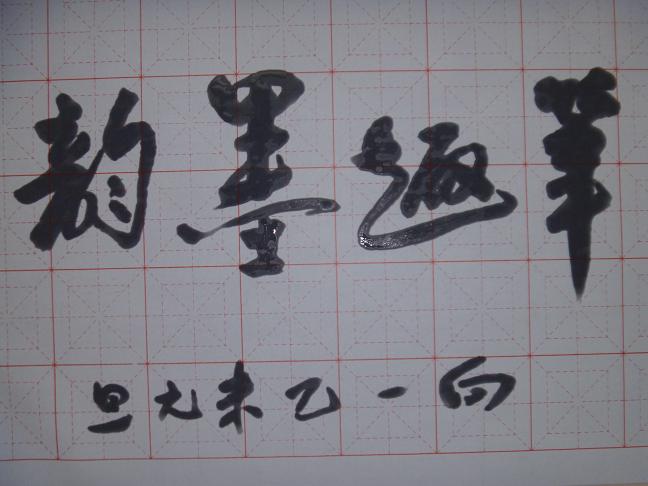 筆趣墨韵
向一乙未元旦